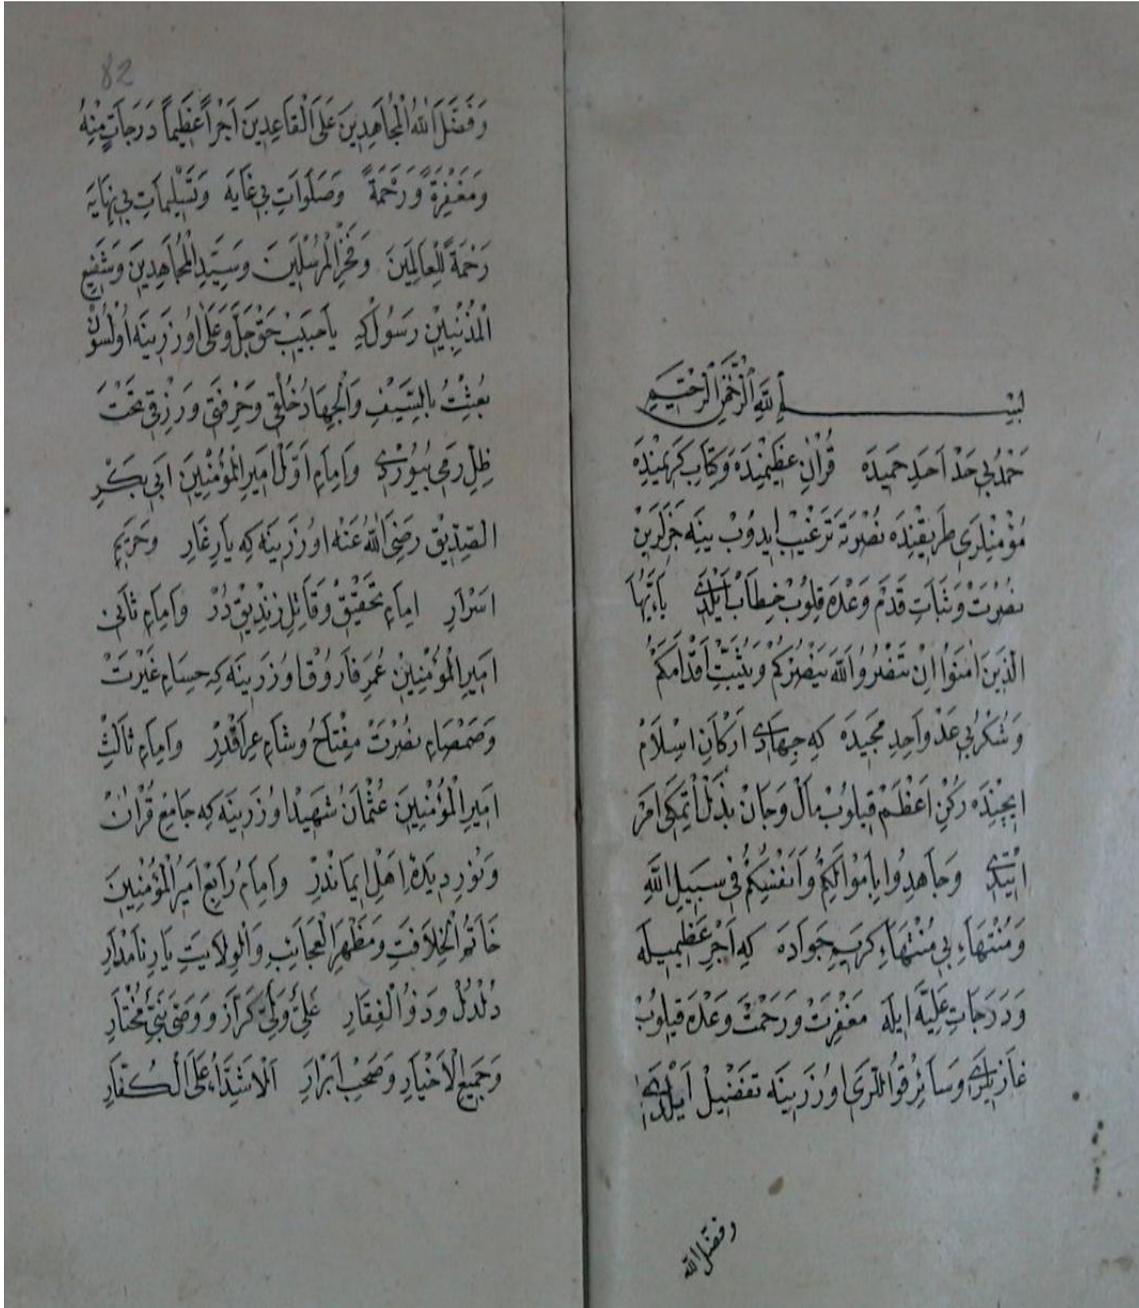 بسم الله الرحمن الرحيم
حمد بی حد احد حمیده قرآن عظیمنده و کتاب کریمنده
مؤمنلری طریقنده نصرته ترغیب ایدوب ینه جزالرین
نصرت و ثبات قدم وعده قلوب خطاب ایلدی یا ایها
الذین امنوا ان تنصروا الله ینصرکم ویثبت اقدامکم
و شکر بی عد واحد مجیده که جهادی ارکان اسلام
ایچنده رکن اعظم قیلوب مال و جان بذل اتمکی امر
اتیدی وجاهدوا باموالکم وانفسکم فی سبیل الله
ومنتهاء بی منتهاء کریم جواده که اجر عظیمیله
ودرجات علیه ایله مغفرت ورحمت وعده قیلوب
غازیلری سائر قوللری اوزرینه تفضیل ایلدی
وفضل الله
82
وَفَضَّلَ اللهُ الْمُجَاهِدِينَ عَلَى الْقَاعِدِينَ اَجْرًا عَظِيمًا دَرَجَاتٍ مِنْهُ
وَمَغْفِرَةً وَرَحْمَةً وَصَلَوَاتِ بی غایه وتسلیمات بی نهایه
رحمة للعالمین وفخر المرسلین وسید المجاهدین وشفیع
المذنبین رسول که یا حبیب حق جل وعلی اوزرینه اولسون
بعثت بالسیف والجهاد خلقی وحرفتی ورزقی تحت
ظل رمحی بیوردی وامام اول امیر المؤمنین ابی بکر
الصدیق رضی الله عنه اوزرینه که یار غار وحریم
اسرار امام تحقیق وقاتل زندیق در وامام ثانی
امیر المؤمنین عمر فاروق اوزرینه که حسام غیرت
وصمصام نصرت مفتاح وشام عراقدر وامام ثالث
امیر المؤمنین عثمان شهید اوزرینه که جامع قرآن
ونور دیده اهل ایماندر وامام رابع امیر المؤمنین
خاتم الخلافت ومظهر العجایب والولایت یار نامدار
دلدل وذو الفقار علی ولی کرار ووصی نبی مختار
وجمیع الاخیار وصحب ابرار الاشداء علی الکفار